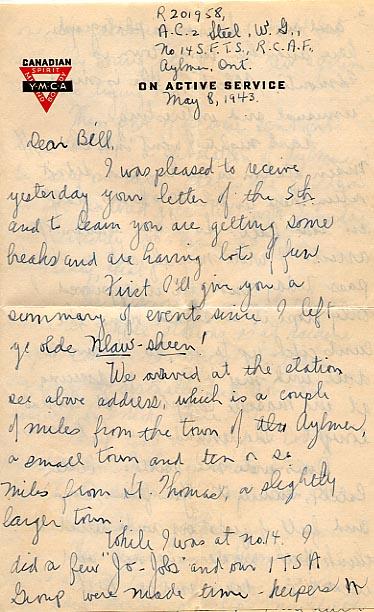 R201958,
A.C.2 Steel, W.G.,
No 14 S.F.T.S., R.C.A.F.
Aylmer, Ont.
CANADIAN
SPIRIT
Y·M·C·A
MIND
BODY
ON ACTIVE SERVICE
May 8, 1943.
Dear Bill,
I was pleased to receive
yesterday your letter of the 5th
and to learn you are getting some
breaks and are having lots of fun.
First I'll give you a
summary of events since I left
ye olde
We arrived at the station
see above address, which is a couple
of miles from the town of Aylmer,
a small town and ten or so
miles from St. Thomas, a slightly
larger town.
While I was at no. 14. I
did a few "Jo-Jobs" and our ITSA
Group were made time-keepers